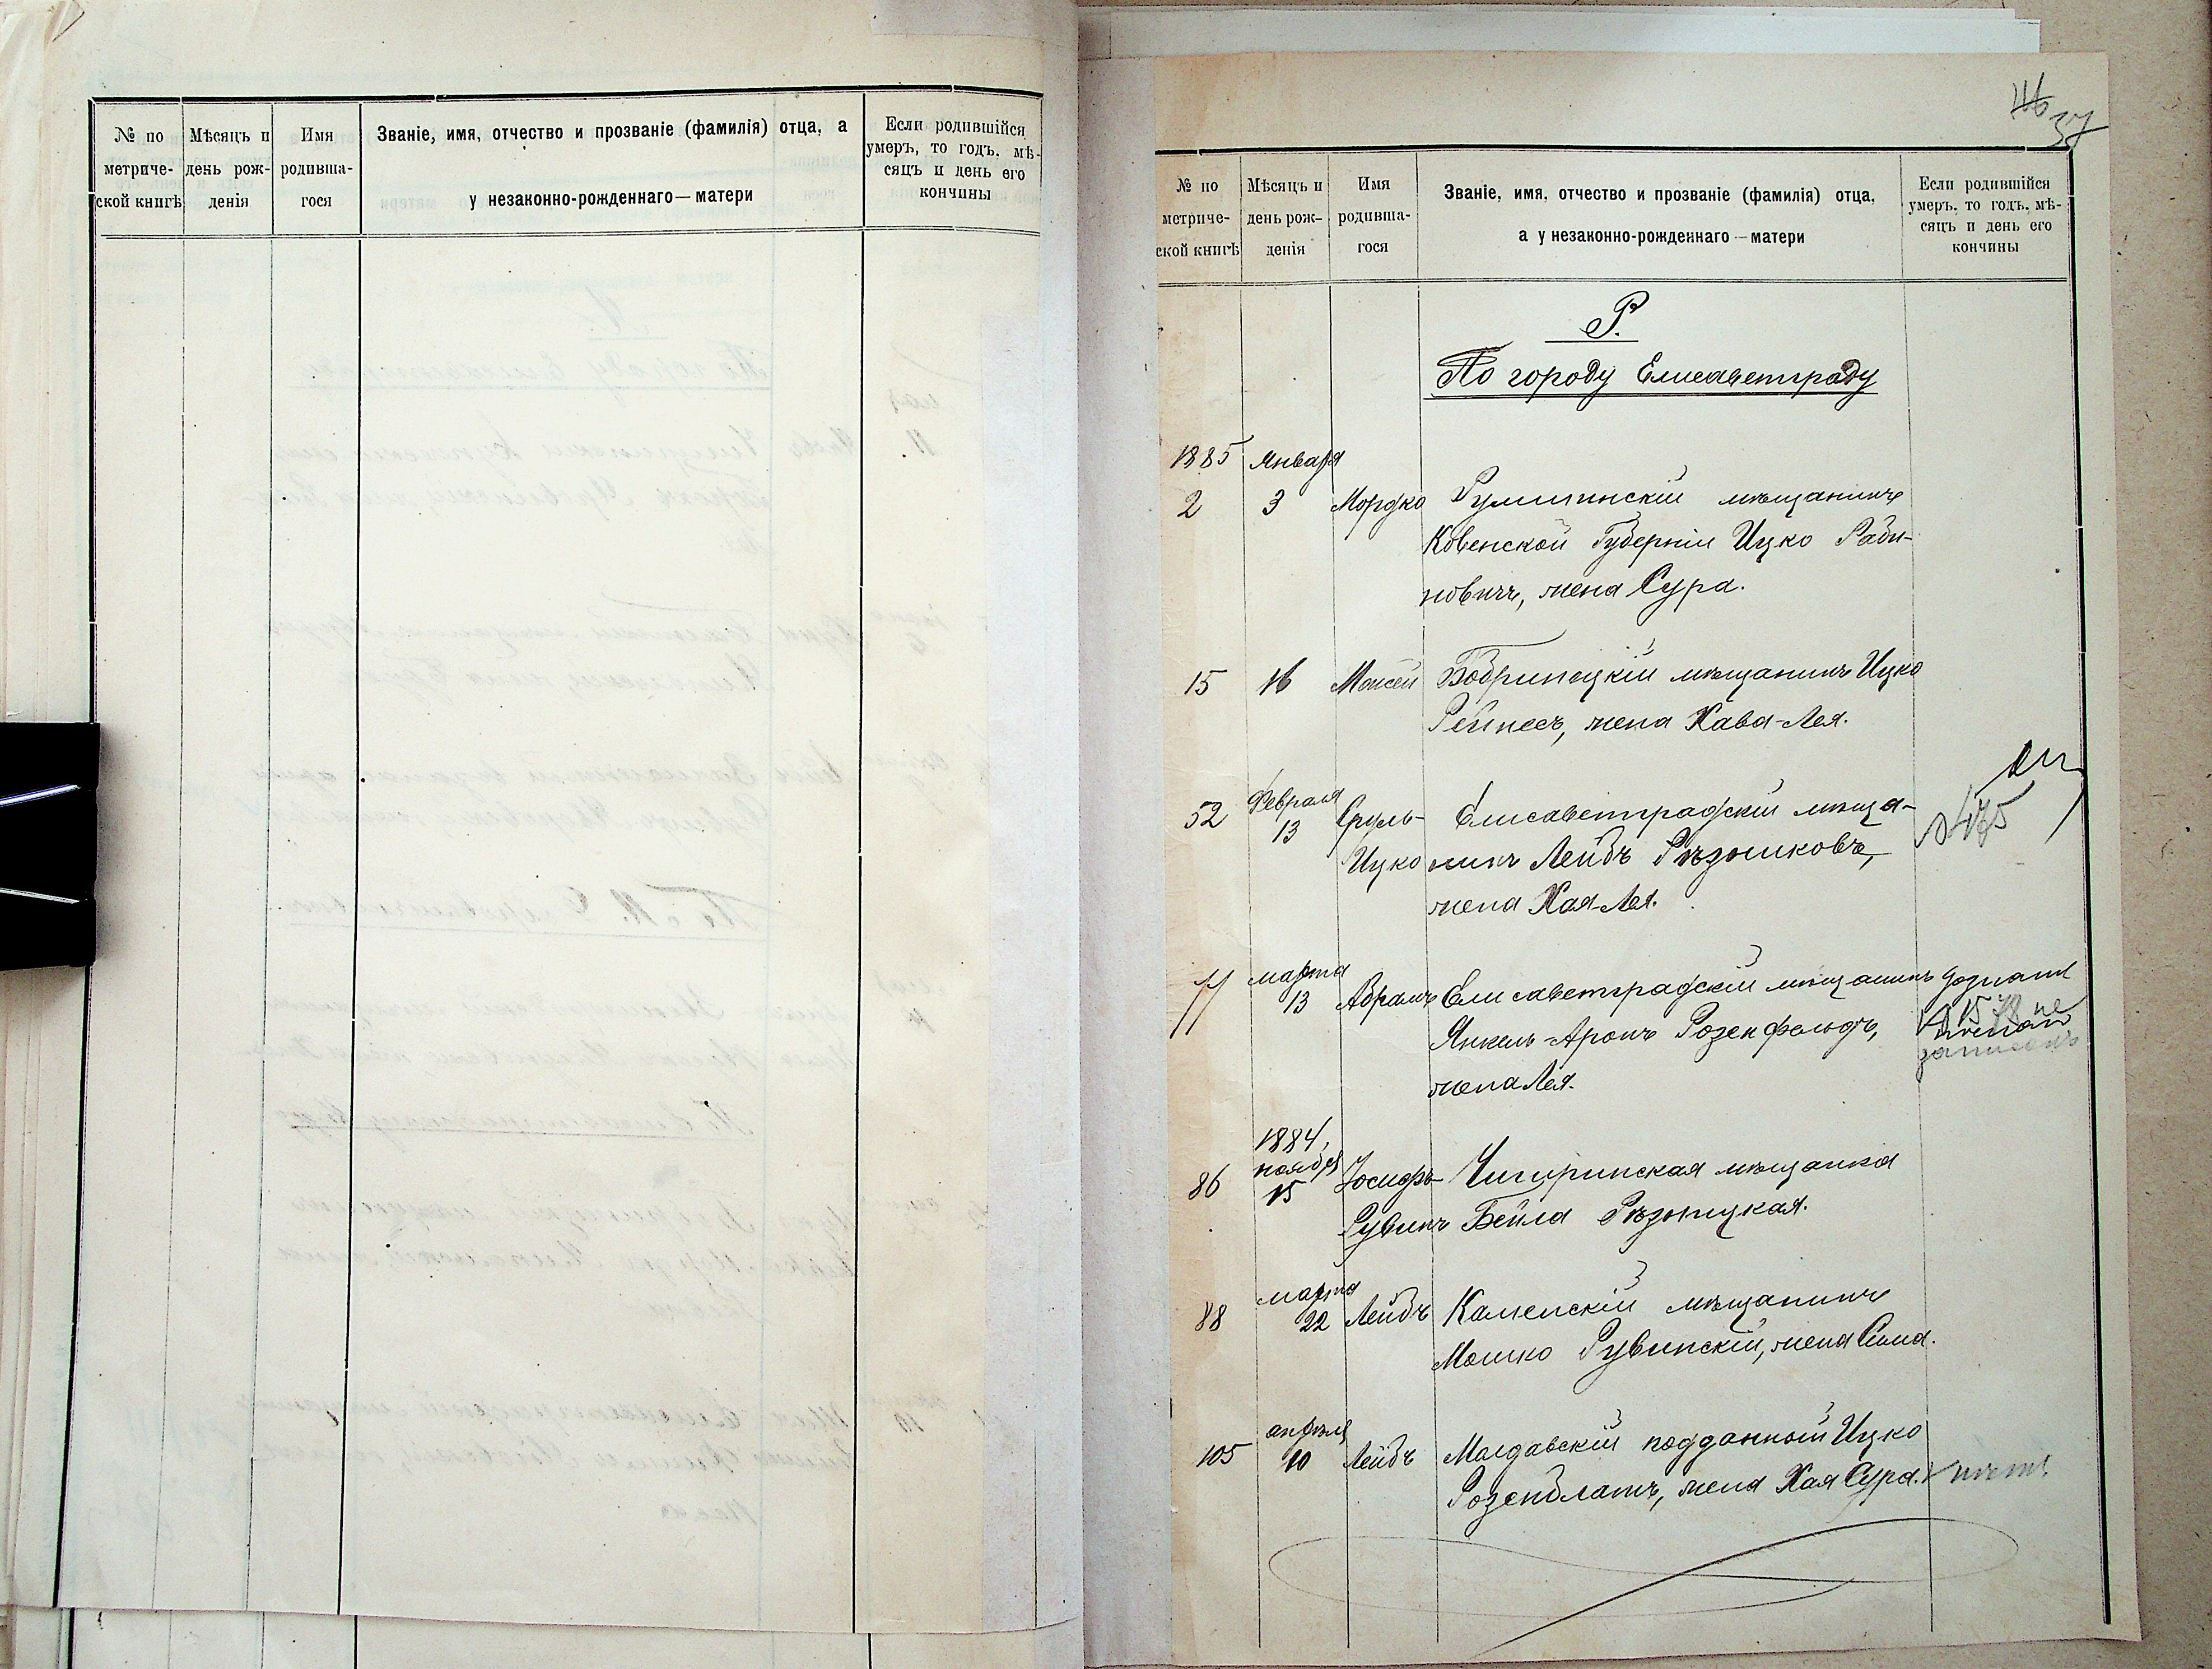 № по метриче-ской книгѣ
Мѣсяцъ и день рож-денія
Имя родивша-гося
Званіе, имя, отчество и прозваніе (фамилія) отца, а
у незаконно-рожденнаго — матери
Если родившійся умеръ, то годъ, мѣ-сяцъ и день его кончины
37
№ по метриче-ской книгѣ
Мѣсяцъ и день рож-денія
Имя родивша-гося
Званіе, имя, отчество и прозваніе (фамилія) отца,
а у незаконно-рожденнаго — матери
Если родившійся умеръ, то годъ, мѣ-сяцъ и день его кончины
Р.
По городу Елисаветграду
1885 Января
2 3 Мордко Румшинскій мѣщанинъ
Ковенской Губерніи Ицко Раби-
новичъ, жена Сура.
15 16 Моисей Бобринецкій мѣщанинъ Ицко
Рейнесъ, жена Хава-Лея.
Февраля
52 13 Сруль- Елисаветградскій мѣща-
Ицко нинъ Лейбъ Рѣзниковъ,
жена Хая-Лея.
марта
77 13 Абрамъ Елисаветградскій мѣщанинъ
Янкель-Аронъ Розенфельдъ,
не
записанъ
жена Лея.
1884,
ноября
86 15 Іосифъ- Чигиринская мѣщанка
Рувинъ Бейла Рѣзницкая.
марта
88 22 Лейбъ Каменскій мѣщанинъ
Мошко Рувинскій, жена Сима.
апрѣля
105 10 Лейбъ Молдавскій подданный Ицко
Розенблатъ, жена Хая Сура.